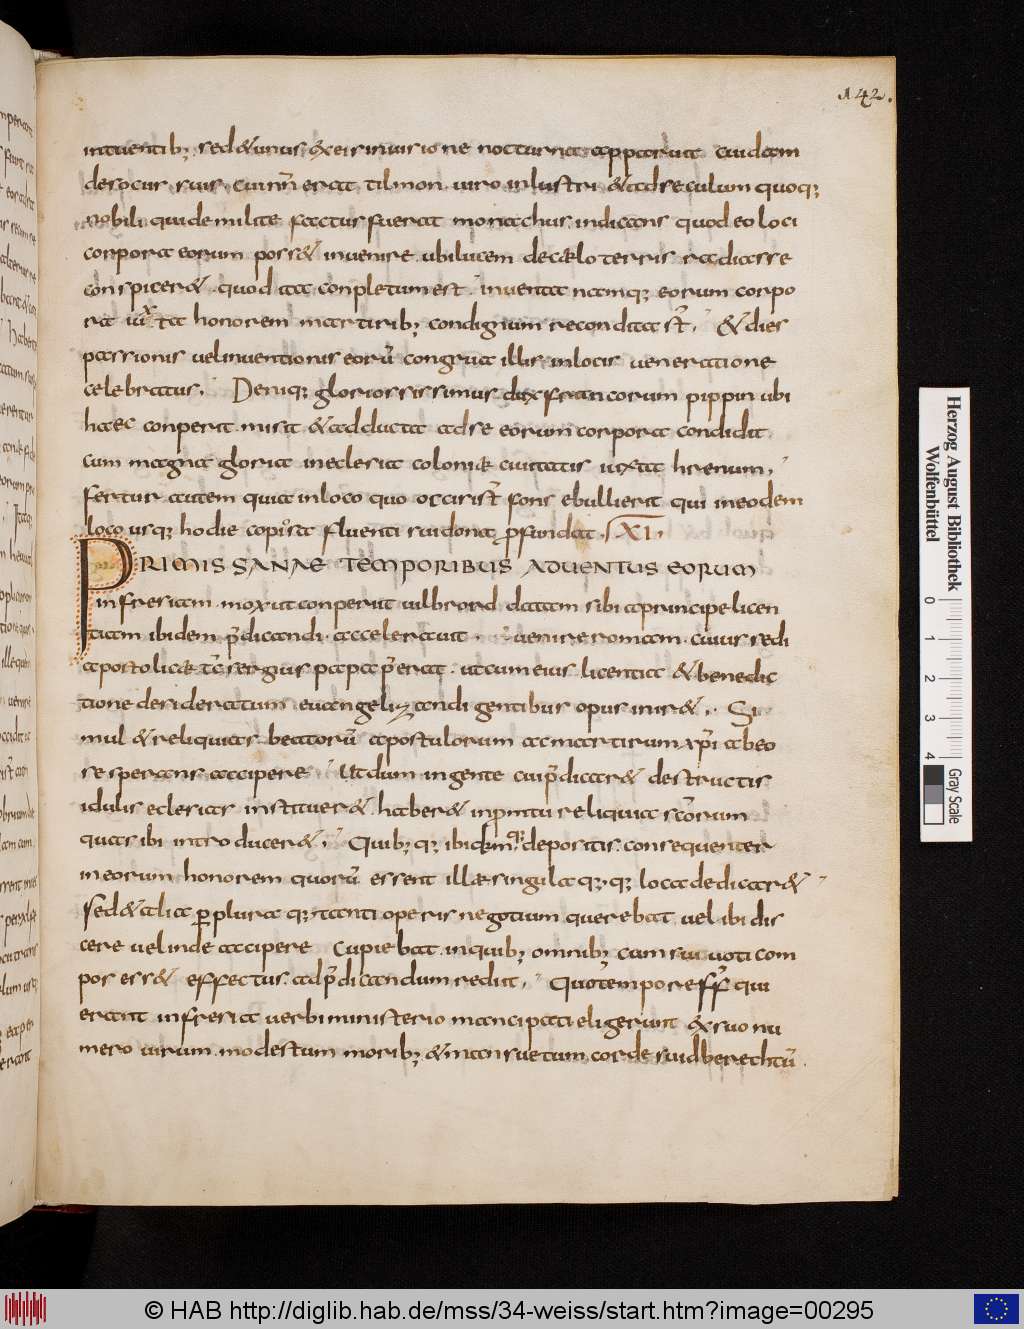 142.
intuentib; sed & unus ex eis in uisione nocturna apparuit cuidam
de socus suis cui nm̄ erat tilmon uiro inlustri & ad seculum quoq;
nobili qui de milite factus fuerat monachus indicans quod eo loci
corpora eorum poss& inuenire ubi lucem de caelo terris radiasse
conspicer&. quod ita conpletum est. inuenta namq; eorum corpo
ra iuxta honorem martirib; condignum recondita sт̄. & dies
passionis uel inuentionis eorū congrua illis in locis ueneratione
celebratus. Deniq; gloriosissimus dux francorum pippin ubi
haec conperit misit & adducta ad se eorum corpora condidit
cum magna gloria in eclesia coloniae ciuitatis iuxta hrenum.
fertur autem quia in loco quo occisi sт̄ fons ebullierit qui in eodem
loco usq; hodie copiosa fluenti sui dona ꝓfundat. XI.
PRIMIS SANAE TEMPORIBUS ADUENTUS EORUM
in fresiam mox ut conperit uilbrord datam sibi a principe licen
tiam ibidem p̄dicandi accelerauit uenire romam cuius sedi
apostolicae tc̄ sergius papa p̄erat. ut cum eius licentia & benedic
tione desideratum euangelizandi gentibus opus inir&. Si
mul & reliquias beatorū apostulorum ac martirum xp̄i ab eo
se sperans accipere Ut dum in gente cui p̄dicar& destructis
idulis eclesias institueret& haber& in pmtu reliquias sc̄orum
quas ibi intro ducer&. Quib; q; ibidem depositis. consequenter
in eorum honorem quorū essent illae singula q; q; loca dedicar&
sed & alia ꝑplura q; tanti operis negotium querebat uel ibi dis
cere uel inde accipere cupiebat in quib; omnib; cum sui uoti com
pos ess& effectus. ad p̄dicandum rediit. Quo tempore ff̄ qui
erant in fresia uerbi ministerio mancipati eligerunt ex suo nu
mero uirum modestum morib; & mansuetum corde suidberechtū
Herzog August Bibliothek
Wolfenbüttel
0 1 2 3 4
Gray Scale
© HAB http://diglib.hab.de/mss/34-weiss/start.htm?image=00295